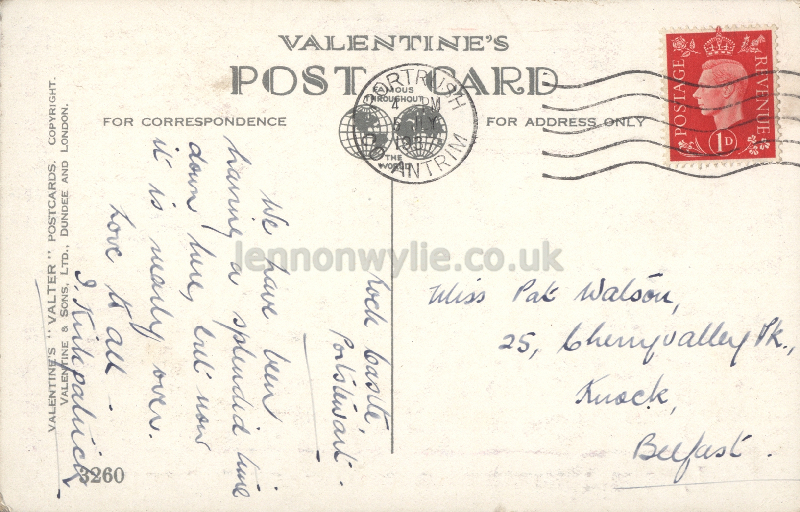 VALENTINE'S
POST CARD
FAMOUS THROUGHOUT
THE WORLD
FOR CORRESPONDENCE
FOR ADDRESS ONLY
PORTRUSH
4 PM
CO ANTRIM
POSTAGE
REVENUE
1D
VALENTINE'S "VALTER" POSTCARDS. COPYRIGHT.
VALENTINE & SONS, LTD., DUNDEE AND LONDON.
Rock Castle,
Portstewart.
We have been
having a splendid time
down here, but now
it is nearly over.
Love to all.
I. Kirkpatrick
Miss Pat Watson,
25, Cherryvalley Pk.,
Knock,
Belfast.
3260
lennonwylie.co.uk